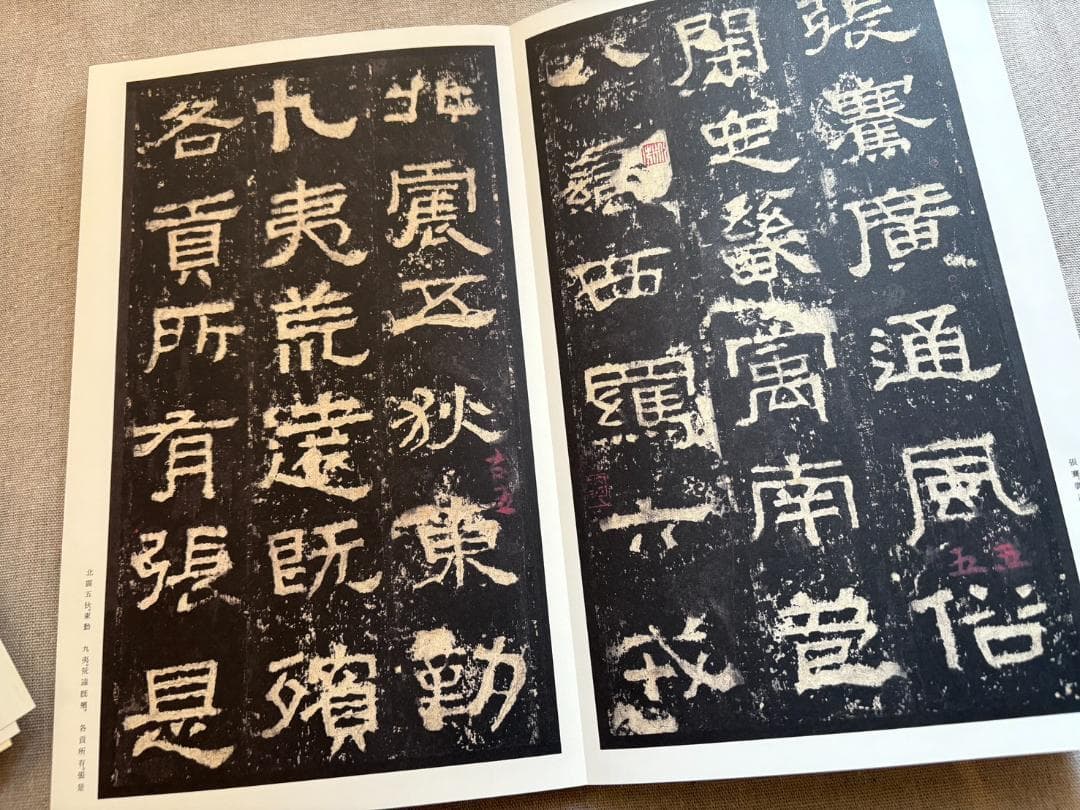 張騫廣通風俗
開定畿寓南苞
八蠻西羈六戎
五五
北震五狄東勤
九夷荒遠既殯
各貢所有張是
北震五狄東勤 九夷荒遠既殯 各貢所有張是
張騫